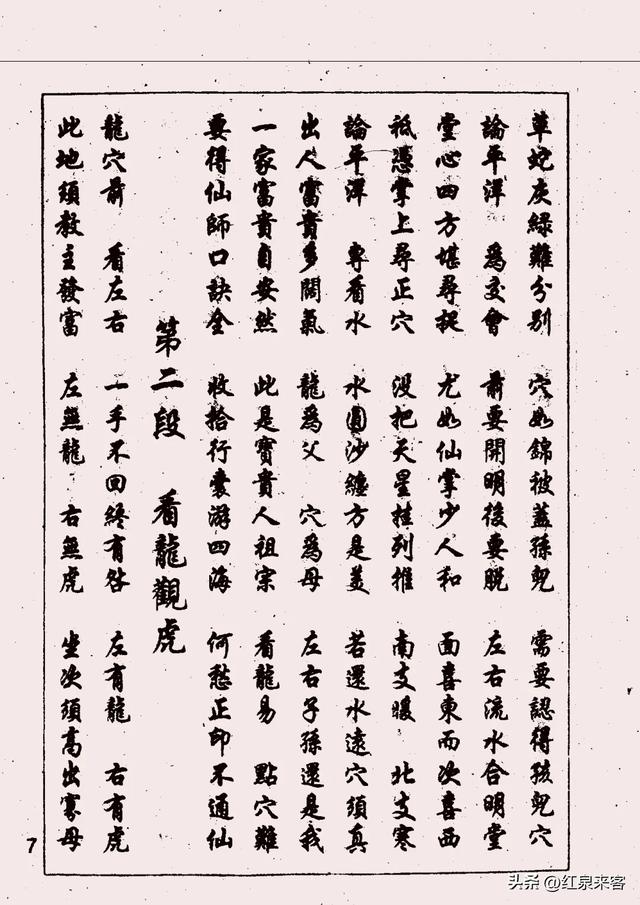 草蛇灰綠難分別 穴如錦被蓋孫兒 需要認得孩兒穴
論平洋 爲交會 前要開明後要脫 左右流水合明堂
堂心四方堪尋捉 尤如仙掌少人和 面喜東而次喜西
祗憑掌上尋正穴 沒把天星挂列推 南支暖 北支寒
論平洋 專看水 水圓沙纏方是美 若還水遠穴須真
出人富貴多闊氣 龍爲父 穴爲母 左右子孫還是我
一家富貴自安然 此是寶貴人祖宗 看龍易 點穴難
要得仙師口訣全 收拾行囊游四海 何愁正印不通仙
第二段 看龍觀虎
龍穴前 看左右 一手不回終有咎 左有龍 右有虎
此地須教主發富 左無龍 右無虎 坐次須高出寡母
7
头条 @红泉来客